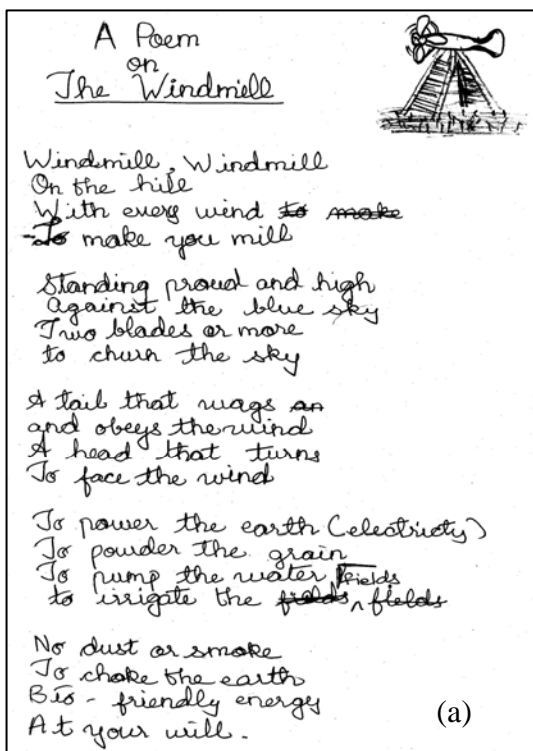 A Poem
on
The Windmill
Windmill, Windmill
On the hill
With every wind to make
To make you mill
Standing proud and high
Against the blue sky
Two blades or more
to churn the sky
A tail that wags an
and obeys the wind
A head that turns
To face the wind
To power the earth (electricty)
To powder the grain
To pump the water
to irrigate the fields fields fields
No dust or smoke
To choke the earth
Bio - friendly energy
At your will.
(a)